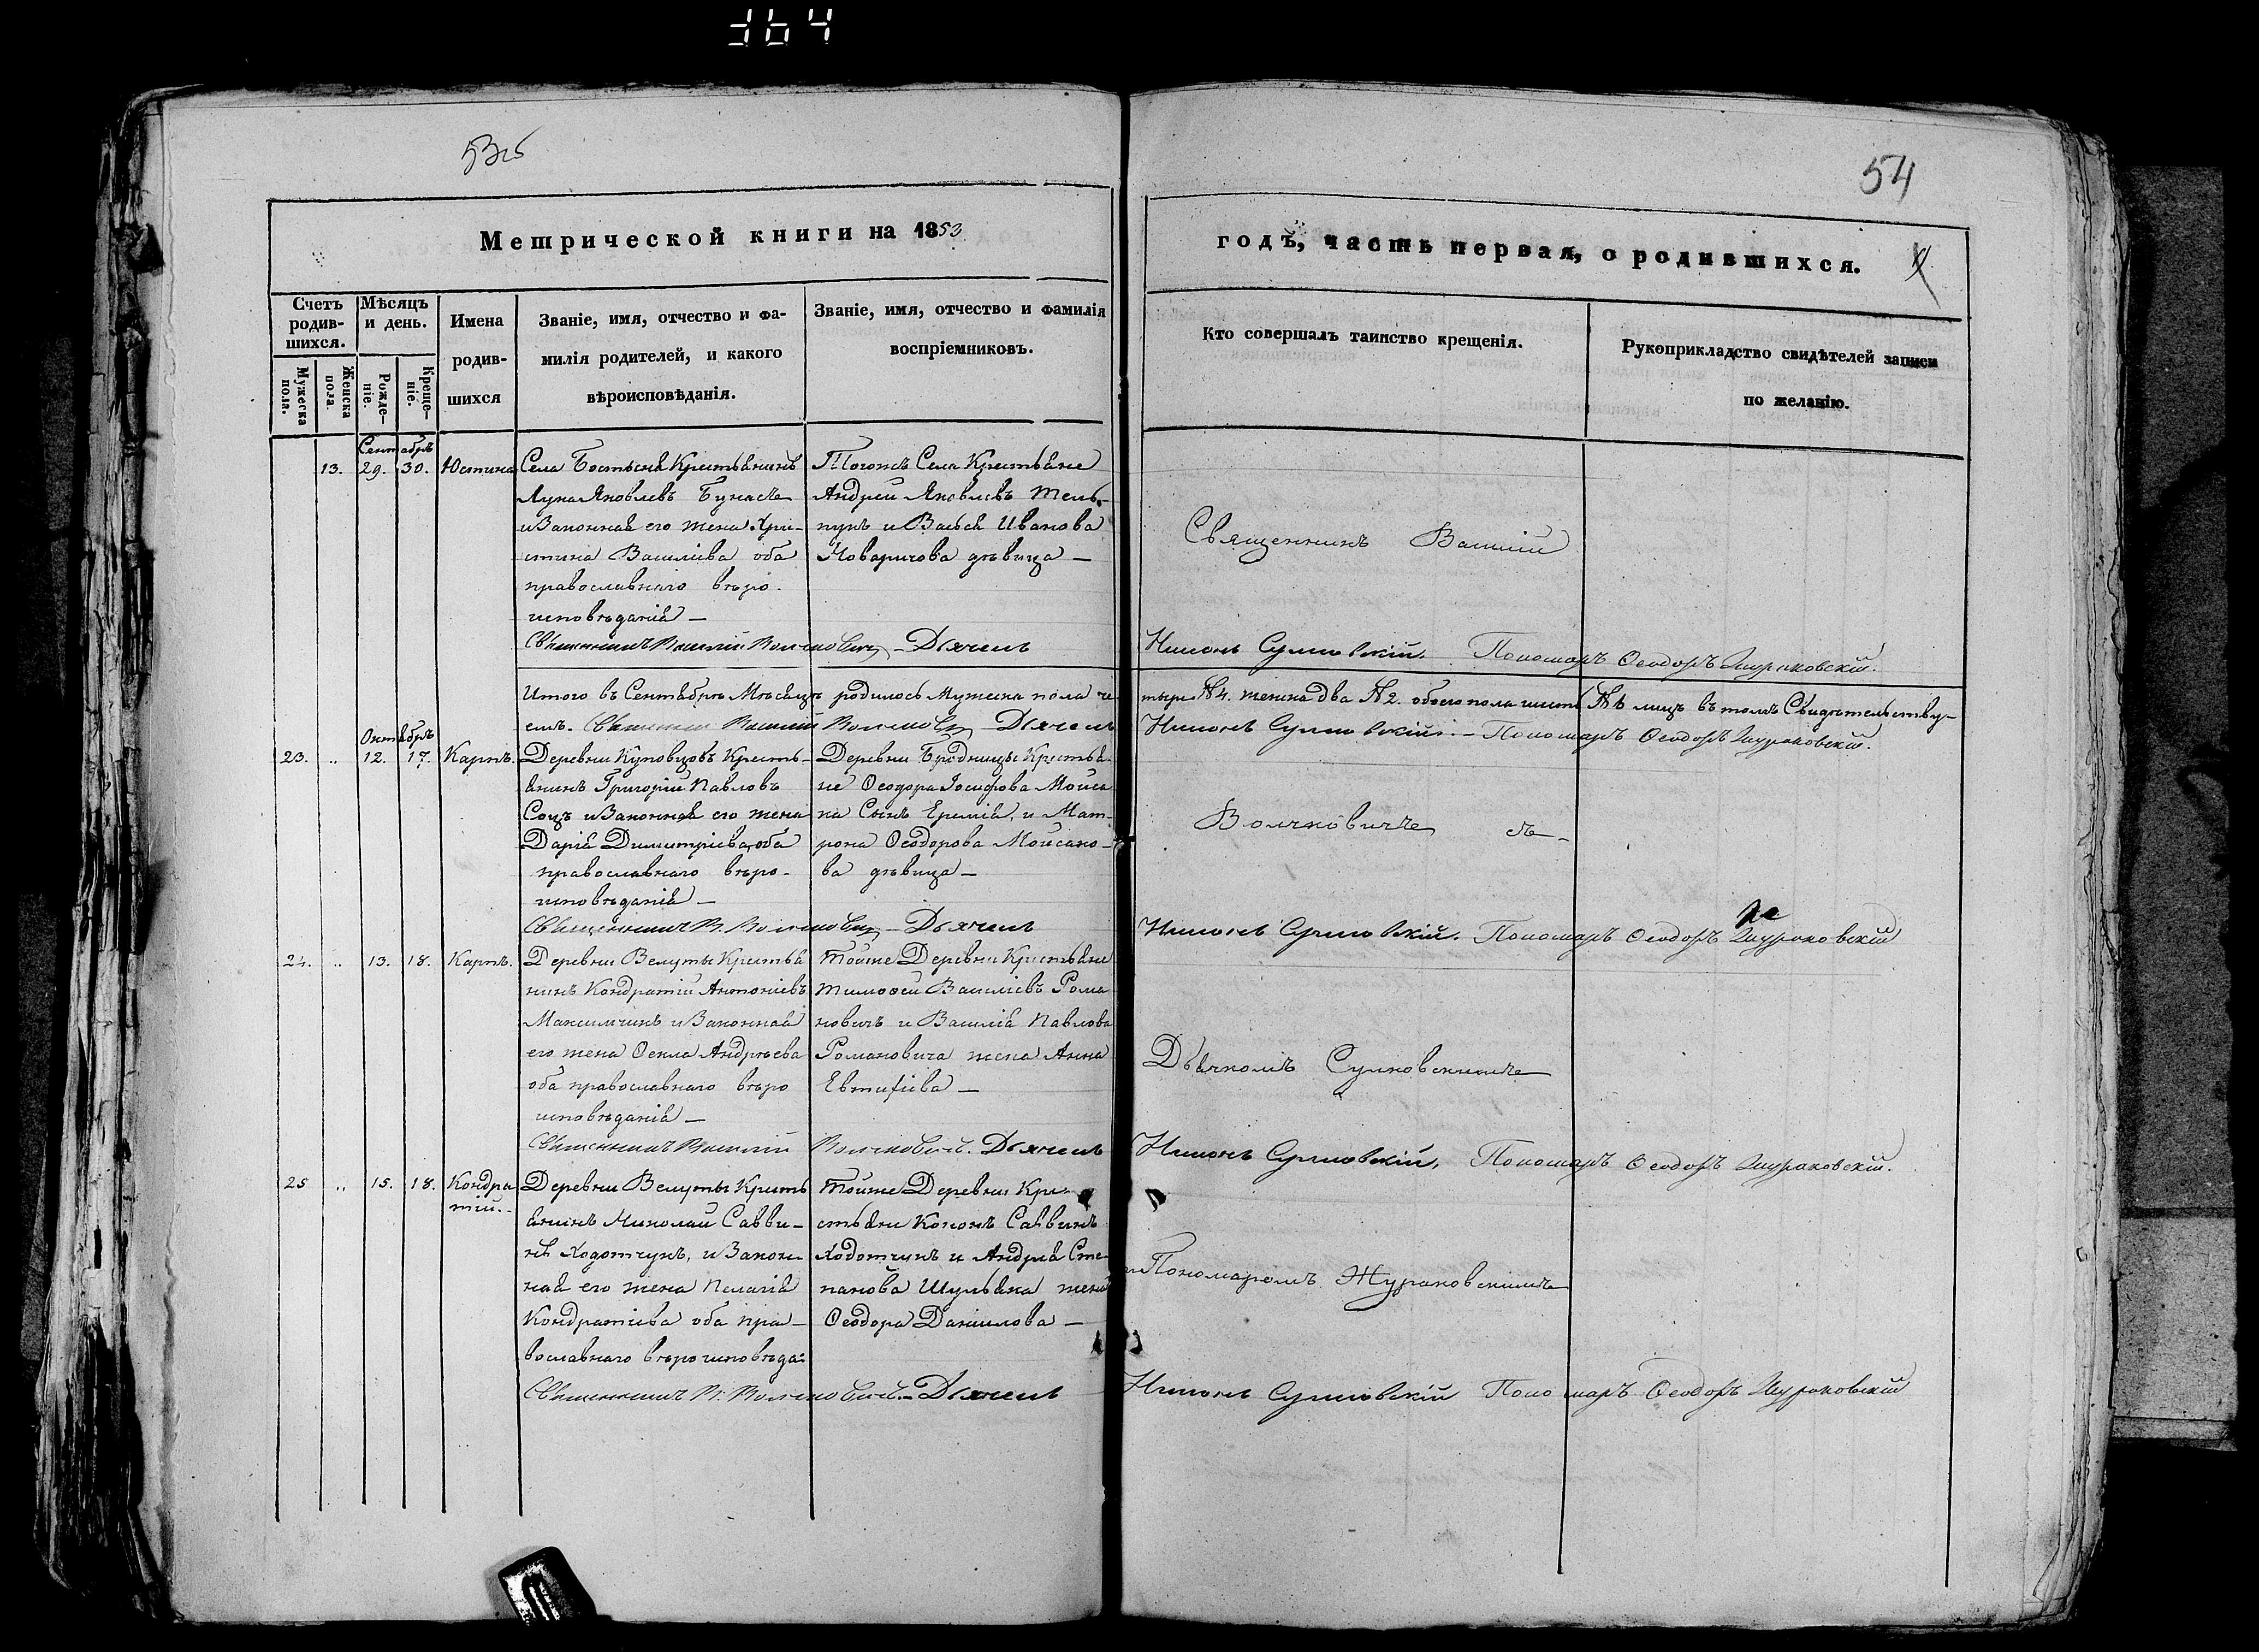 364
53об
54
Метрической книги на 1853
годъ, часть первая, о родившихся.
Счетъ родив-шихся.
Мѣсяцъ и день.
Имена родив-шихся
Званіе, имя, отчество и фа-милія родителей, и какого вѣроисповѣданія.
Званіе, имя, отчество и фамилія воспріемниковъ.
Кто совершалъ таинство крещенія.
Рукоприкладство свидѣтелей записи по желанію.
Мужеска пола.
Женска пола.
Рожде-ніе.
Креще-ніе.
Сентабрь
13. 29. 30. Юстина
Села Бостыня Крестьянинъ
Лука Яковлевъ
и Законная его жена Хри-
стина Василіева оба
православнаго вѣро-
исповѣданія —
Тогожъ Села Крестьяне
Андрей Яковлевъ Тель-
пукъ и Васса Иванова
дѣвица —
Священникъ Василій
Священникъ Василій Волчковичъ — Дьячекъ
Сулковскій. Пономарь Ѳеодоръ Жураковскій.
Итого въ Сентябрѣ Мѣсяцѣ родилось Мужеска пола че
тыри №4. женска два №2. обоего пола шесть №6 лицъ въ томъ Свидѣтельству-
емъ. Священникъ Василій Волчковичъ — Дьячекъ
Сулковскій. — Пономарь Ѳеодоръ Жураковскій.
Октябрь
23. „ 12. 17. Карпъ.
Деревни Куповцовъ Кресть-
янинъ Григорій Павловъ
Соцъ и Законная его жена
Дарія Димитріева, оба
православнаго вѣро-
исповѣданія —
Деревни Бродницы Крестья-
не Ѳеодора Іосифова Мойса
ка Сынъ Еремія, и Мат-
рона Ѳеодорова Мойсако-
ва дѣвица —
Волчковичъ съ —
Священникъ В. Волчковичъ — Дьячекъ
Сулковскій. Пономарь Ѳеодоръ Жураковскій
24. „ 13. 18. Карпъ.
Деревни Велуты Крестья
нинъ Кондратій Антоніевъ
и Законная
его жена Ѳекла Андреева
оба православнаго вѣро
исповѣданія —
Тойже Деревни Крестьяне
Тимоѳей Василіевъ Рома
новичъ и Василія Павлова
Романовича жена Анна
Евтифіева —
Дьячкомъ Сулковскимъ
Священникъ Василій Волчковичъ. Дьячекъ
Сулковскій, Пономарь Ѳеодоръ Жураковскій.
25 „ 15. 18. Кондра
тій. —
Деревни Велуты Кресть
янинъ Николай Савви-
нъ Ходотчукъ, и Закон-
ная его жена Пелагія
Кондратіева оба пра-
вославнаго вѣроисповѣда-
Тойже Деревни Кре-
стьяни Кононъ Саввинъ
Ходотчукъ и Андрея Сте
панова Шульжа жена
Ѳеодора Даніилова —
Пономаремъ Жураковскимъ
Священникъ В. Волчковичъ. — Дьячекъ
Сулковскій Пономарь Ѳеодоръ Жураковскій